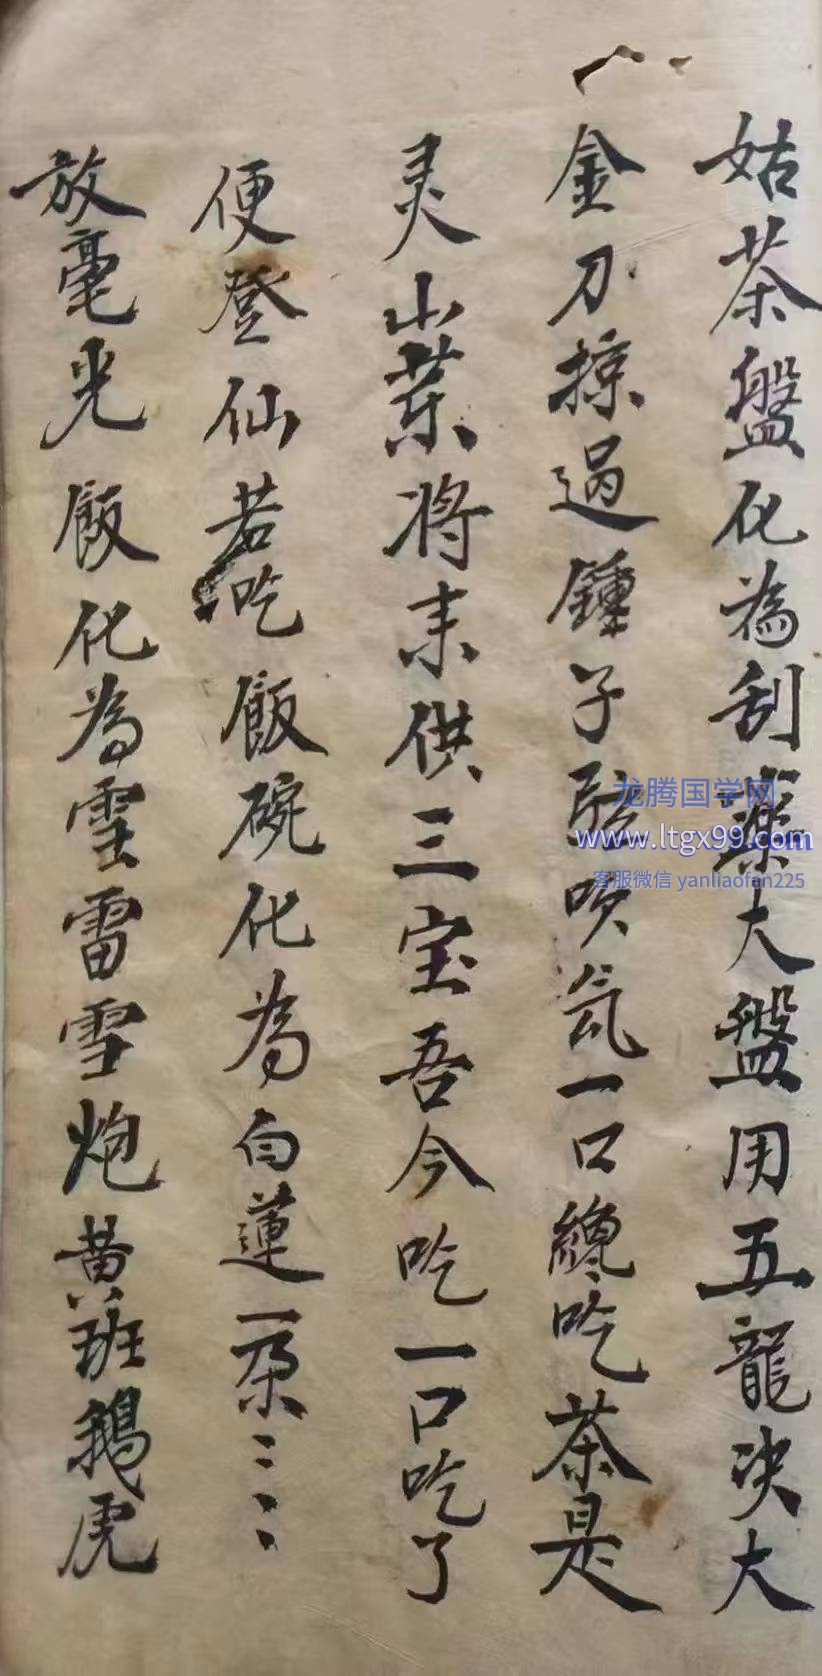 姑茶盤化為刮藥大盤用五龍决大
金刀掠過鍾子駐吹氣一口總吃茶是
灵山葉将来供三宝吾今吃一口吃了
便登仙若吃飯碗化為白蓮一朶〻〻〻
放毫光飯化為雪雷雪炮黄班鵝虎
龙腾国学网
www.ltgx99.com
客服微信 yanliaofan225